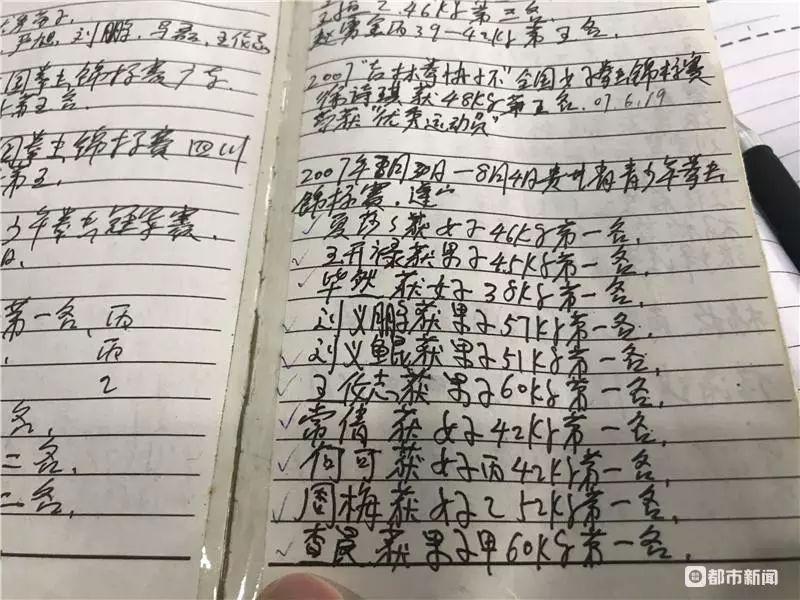 严旭、刘鹏、
国拳击锦标赛广东
第五名.
国拳击锦标赛四川
第五.
少年拳击冠军赛.
第一名, 丙
丙
乙
名,
二名,
二名,
46Kg第三名
39-42Kg第五名
2007"吉林 杯"全国女子拳击锦标赛
获48Kg第五名. 07.6.19
荣获"优秀运动员"
2007年 月 日—8月4日贵州省青少年拳击
锦标赛.
获女子46Kg第一名,
王开禄获男子45Kg第一名,
毕然获女子38Kg第一名,
刘义鹏获男子57Kg第一名.
刘义鲲获男子51Kg第一名,
王俊志获男子60Kg第一名,
常倩获女子42Kg第一名,
何可获女子丙42Kg第一名,
周梅获女子乙52Kg第一名,
查 获男子甲60Kg第一名.
都市新闻